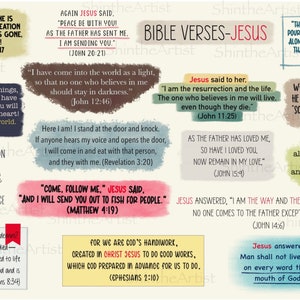 AGAIN JESUS SAID,
"PEACE BE WITH YOU!
AS THE FATHER HAS SENT ME,
I AM SENDING YOU."
(JOHN 20:21)
BIBLE VERSES-JESUS
"I have come into the world as a light,
so that no one who believes in me
should stay in darkness."
(John 12:46)
Jesus said to her,
"I am the resurrection and the life.
The one who believes in me will live,
even though they die."
(John 11:25)
Here I am! I stand at the door and knock.
If anyone hears my voice and opens the door,
I will come in and eat with that person,
and they with me. (Revelation 3:20)
AS THE FATHER HAS LOVED ME,
SO HAVE I LOVED YOU,
NOW REMAIN IN MY LOVE."
(JOHN 15:9)
"COME, FOLLOW ME," JESUS SAID,
"AND I WILL SEND YOU OUT TO FISH FOR PEOPLE."
(MATTHEW 4:19)
JESUS ANSWERED, "I AM THE WAY AND THE
NO ONE COMES TO THE FATHER EXCEPT
(JOHN 14
FOR WE ARE GOD'S HANDIWORK,
CREATED IN CHRIST JESUS TO DO GOOD WORKS,
WHICH GOD PREPARED IN ADVANCE FOR US TO DO.
(EPHESIANS 2:10)
Jesus answered
Man shall not live
on every word th
mouth of God
ShintheArtist